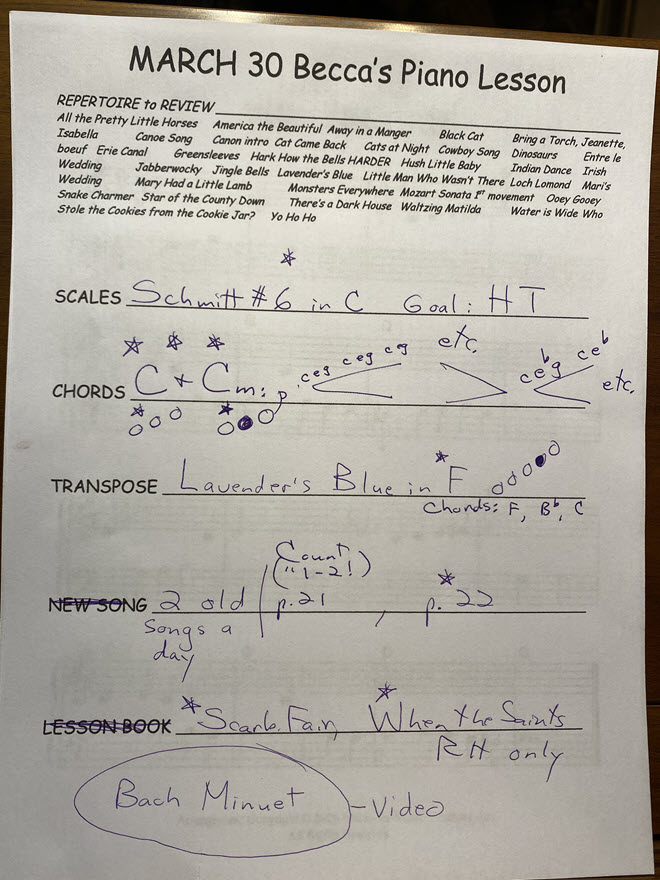 MARCH 30 Becca's Piano Lesson
REPERTOIRE to REVIEW
All the Pretty Little Horses America the Beautiful Away in a Manger Black Cat Bring a Torch, Jeanette,
Isabella Canoe Song Canon intro Cat Came Back Cats at Night Cowboy Song Dinosaurs Entre le
boeuf Erie Canal Greensleeves Hark How the Bells HARDER Hush Little Baby Indian Dance Irish
Wedding Jabberwocky Jingle Bells Lavender's Blue Little Man Who Wasn't There Loch Lomond Mari's
Wedding Mary Had a Little Lamb Monsters Everywhere Mozart Sonata 1st movement Ooey Gooey
Snake Charmer Star of the County Down There's a Dark House Waltzing Matilda Water is Wide Who
Stole the Cookies from the Cookie Jar? Yo Ho Ho
SCALES Schmitt #6 in C Goal: HT
etc.
ceg ceg ceg
CHORDS C + Cm: p ce♭g ce♭ etc.
TRANSPOSE Lavender's Blue in F
Chords: F, B♭, C
Count
("1-2!)
NEW SONG 2 old p.21, p. 22
songs a
day
LESSON BOOK Scarb. Fair, When the Saints
RH only
Bach Minuet - Video